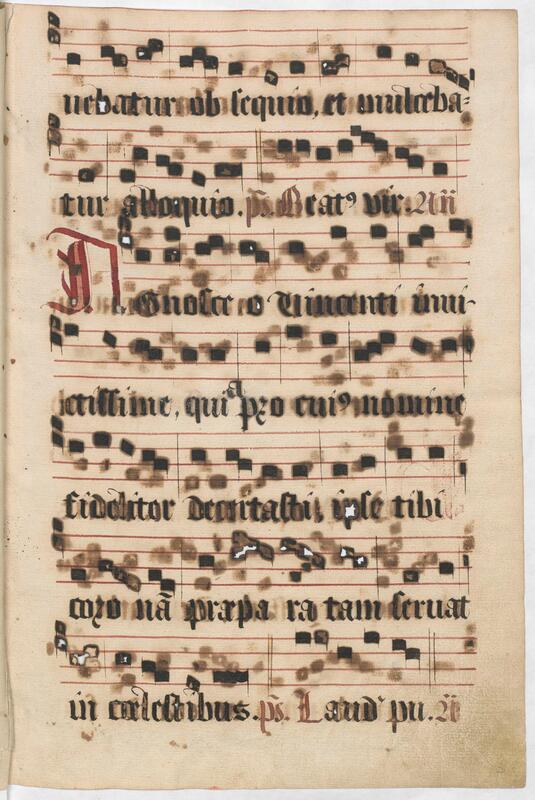 uebatur ob sequio, et mulceba-
tur alloquio. ps. Beatꝰ vir. Añ
Agnosce o Vincenti inui-
ctissime, quia pro cuiꝰ nomine
fideliter decertasti, ipse tibi
coro nā præpa ra tam seruat
in cœlestibus. ps. Laud pu. ā